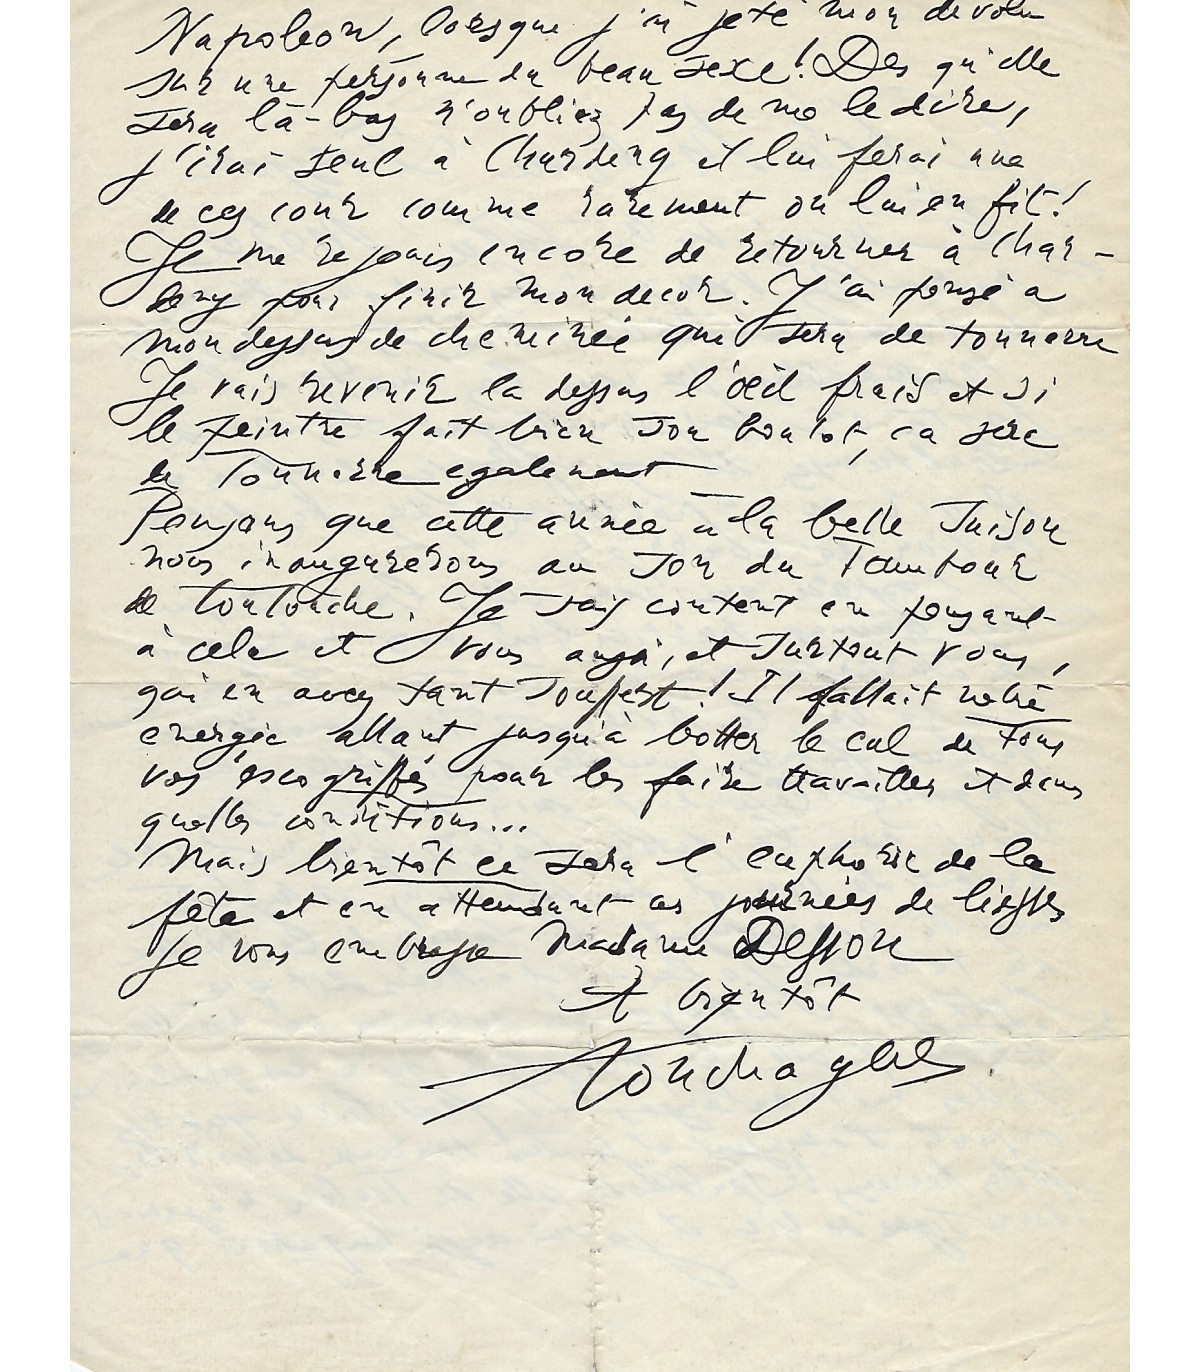 Napoleon, lorsque j'ai jeté mon dévolu
sur une personne du beau sexe! Des qu'elle
sera là-bas n'oubliez pas de me le dire,
j'irai seul à Chardeny et lui ferai une
de ces cour comme rarement on lui en fit!
Je me rejouis encore de retourner à Char-
deny pour finir mon decor. J'ai pensé a
mon dessus de cheminée qui sera de tonnerre
Je vais revenir la dessus l'œil frais et si
le peintre fait bien son boulot, ca sera
de Tonnerre egalement
Pensons que cette année à la belle saison
nous inaugurerons au son du Tambour
de . Je suis content en pensant
à cela et vous aussi, et surtout vous,
qui en avez tant souffert! Il fallait votre
energie allant jusqu'à botter le cul de tous
vos escogriffes pour les faire travailler et dans
quelles conditions...
Mais bientôt ce sera l'euphorie de la
fête et en attendant ces journées de liesses
Je vous embrasse Madame
A bientôt